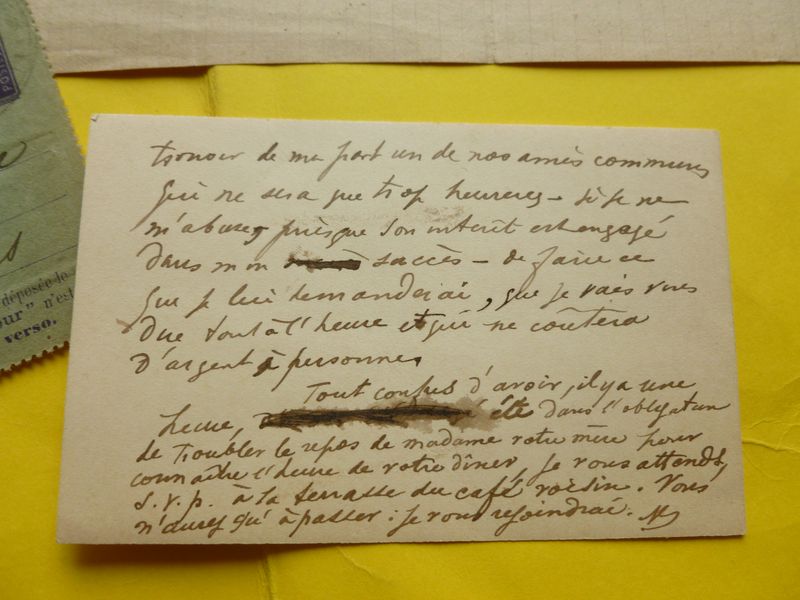 trouver de ma part un de nos amis communs
qui ne sera que trop heureux – si je ne
m'abuse, puisque son intérêt est engagé
dans mon succès – de faire ce
que je lui demanderai, que je vais vous
dire tout à l'heure et qui ne coûtera
d'argent à personne.
Tout confus d'avoir, il y a une
heure, été dans l'obligation
de troubler le repos de madame votre mère pour
connaître l'heure de votre dîner, je vous attends,
s.v.p. à la terrasse du café voisin. Vous
n'aurez qu'à passer : je vous rejoindrai.
déposée le
our" n'est
verso.